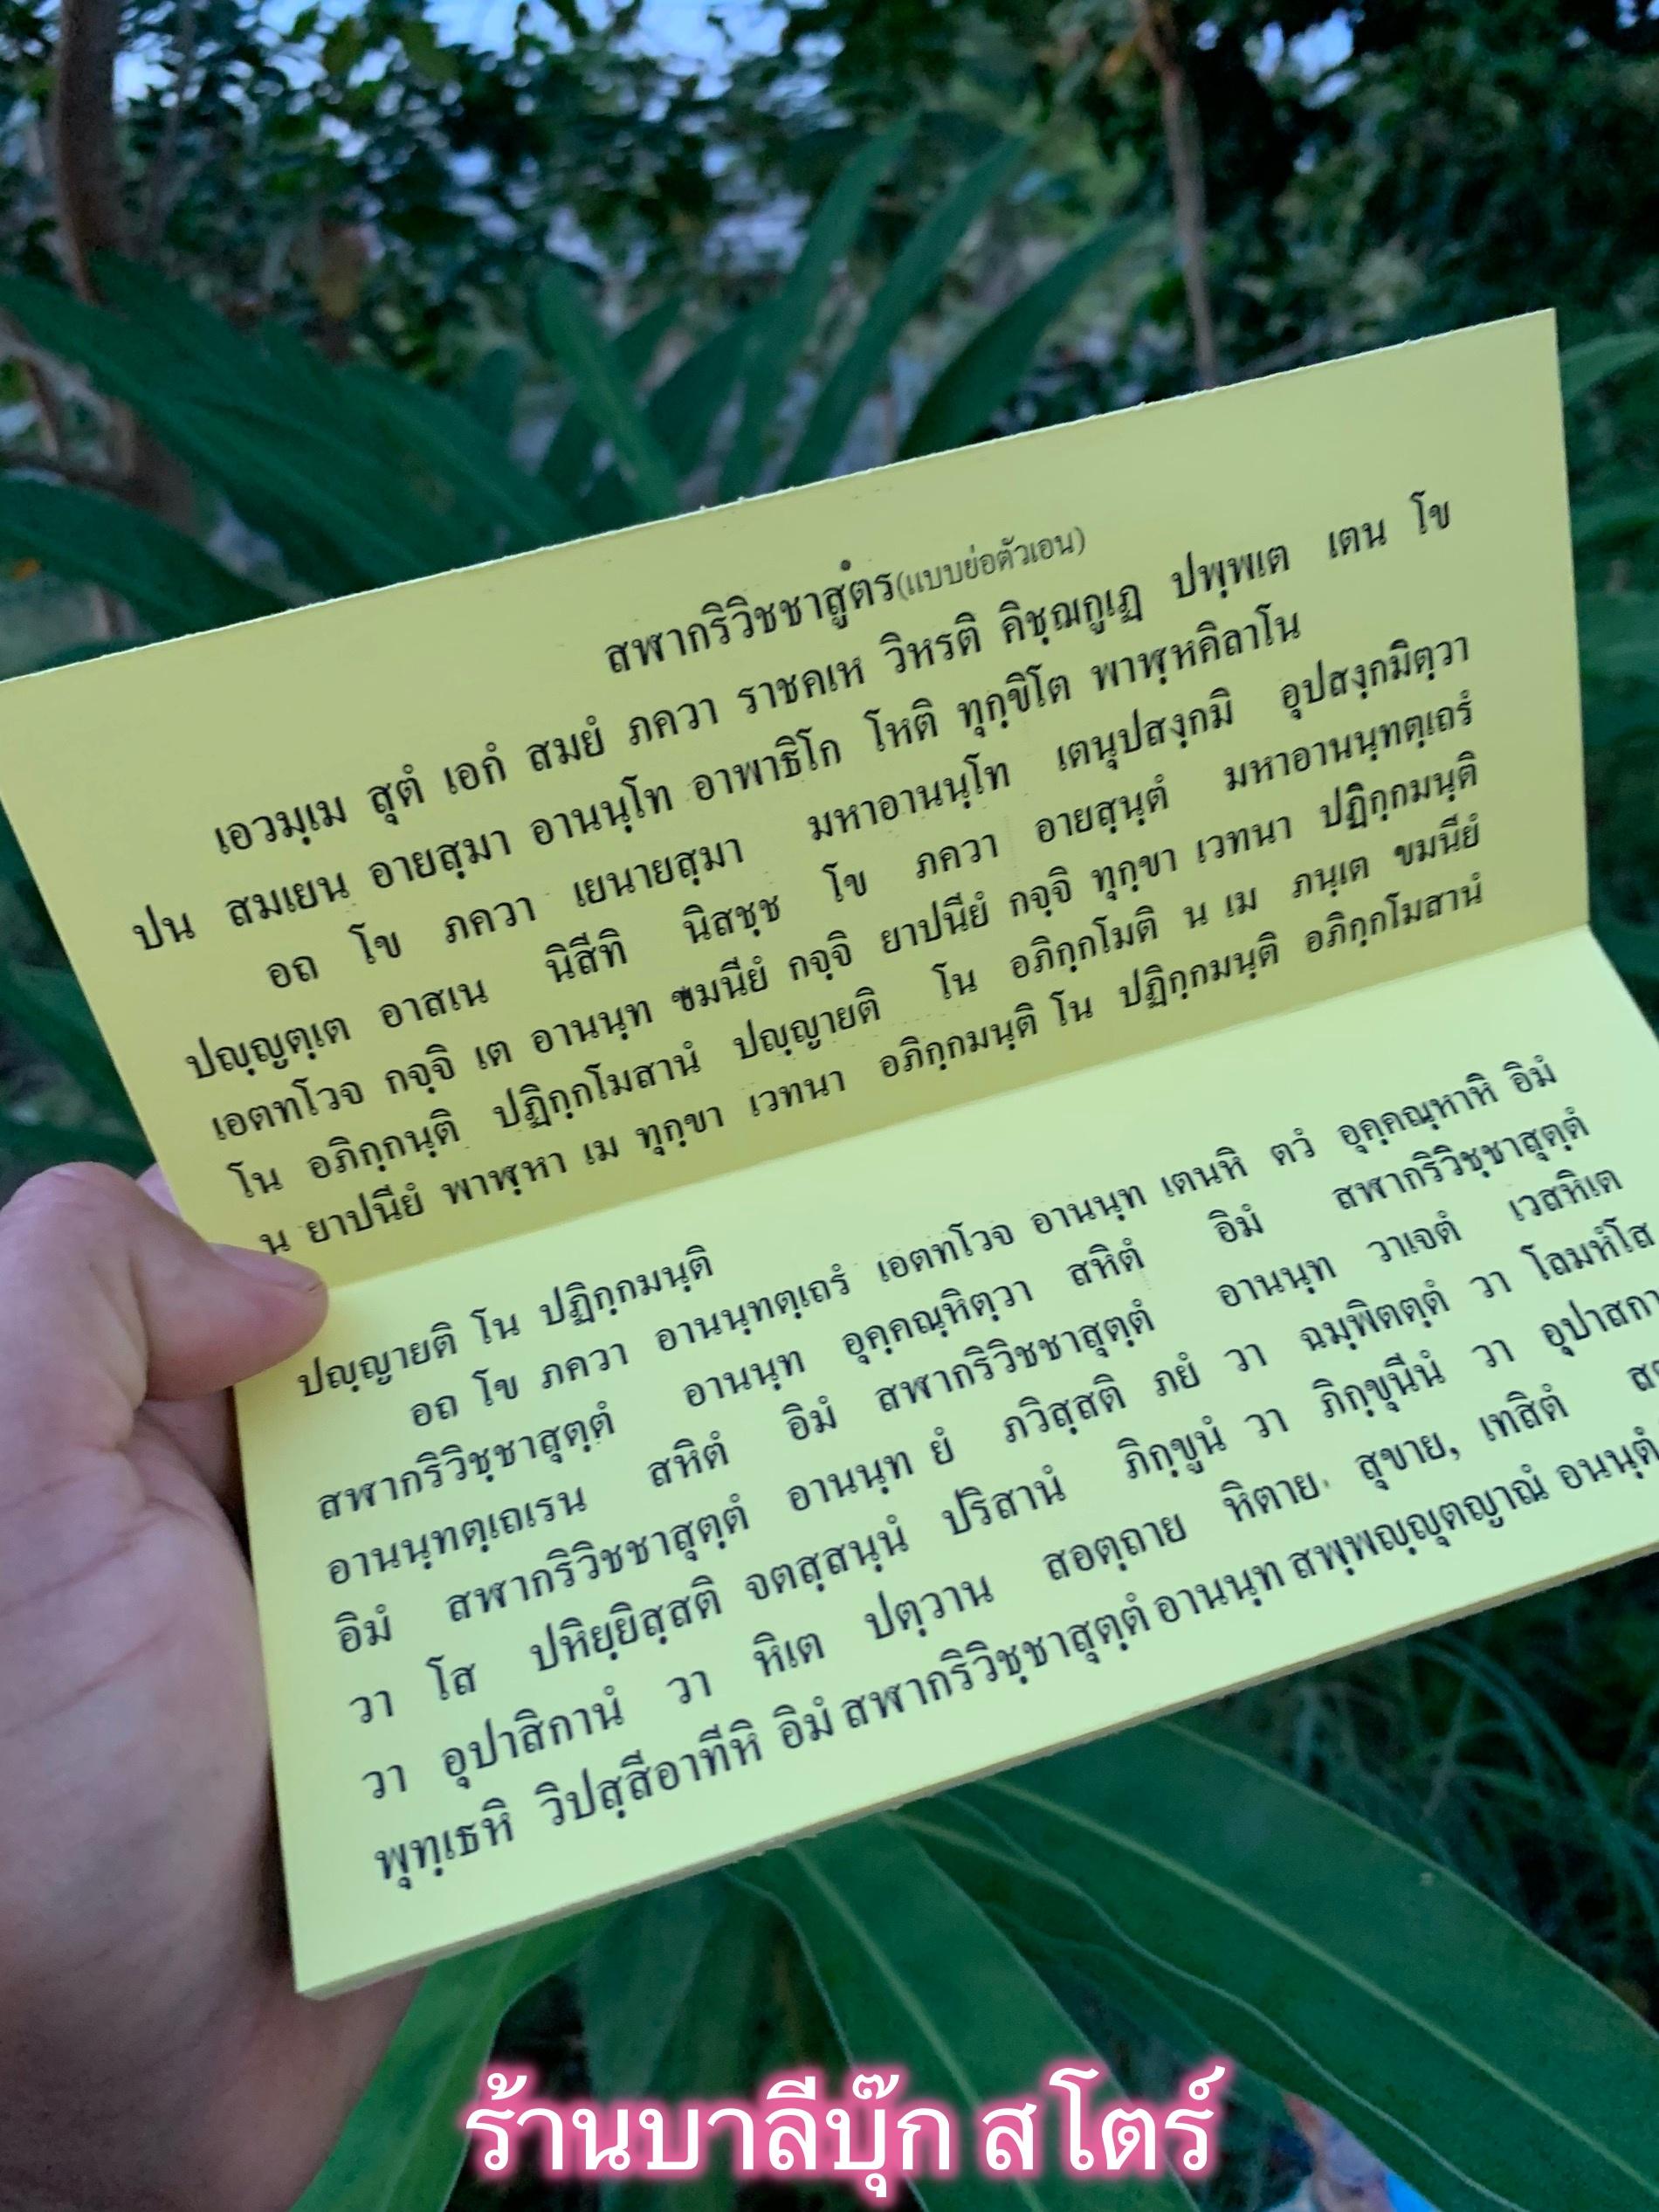 สฬากริวิชชาสูตร(แบบย่อตัวเอน)
เอวมฺเม สุตํ เอกํ สมยํ ภควา ราชคเห วิหรติ คิชฺฌกูเฏ ปพฺพเต เตน โข
ปน สมเยน อายสฺมา อานนฺโท อาพาธิโก โหติ ทุกฺขิโต พาฬฺหคิลาโน
อถ โข ภควา เยนายสฺมา มหาอานนฺโท เตนุปสงฺกมิ อุปสงฺกมิตฺวา
ปญฺญตฺเต อาสเน นิสีทิ นิสชฺช โข ภควา อายสฺนฺตํ มหาอานนฺทตฺเถรํ
เอตทโวจ กจฺจิ เต อานนฺท ขมนียํ กจฺจิ ยาปนียํ กจฺจิ ทุกฺขา เวทนา ปฏิกฺกมนฺติ
โน อภิกฺกนฺติ ปฏิกฺกโมสานํ ปญฺญายติ โน อภิกฺกโมติ น เม ภนฺเต ขมนียํ
น ยาปนียํ พาฬฺหา เม ทุกฺขา เวทนา อภิกฺกมนฺติ โน ปฏิกฺกมนฺติ อภิกฺกโมสานํ
ปญฺญายติ โน ปฏิกฺกมนฺติ
อถ โข ภควา อานนฺทตฺเถรํ เอตทโวจ อานนฺท เตนหิ ตวํ อุคฺคณฺหาหิ อิมํ
สฬากริวิชฺชาสุตฺตํ อานนฺท อุคฺคณฺหิตฺวา สหิตํ อิมํ สฬากริวิชฺชาสุตฺตํ
อานนฺทตฺเถเรน สหิตํ อิมํ สฬากริวิชชาสุตฺตํ อานนฺท วาเจตํ เวสหิเต
อิมํ สฬากริวิชชาสุตฺตํ อานนฺท ยํ ภวิสฺสติ ภยํ วา ฉมฺพิตตฺตํ วา โลมหํโส
วา โส ปหิยฺยิสฺสติ จตสฺสนฺนํ ปริสานํ ภิกฺขูนํ วา ภิกฺขุนีนํ วา อุปาสกา
วา อุปาสิกานํ วา หิเต ปตฺวาน สอตฺถาย หิตาย สุขาย, เทสิตํ
พุทฺเธหิ วิปสฺสีอาทีหิ อิมํ สฬากริวิชฺชาสุตฺตํ อานนฺท สพฺพญฺญุตญาณํ อนนฺตํ
ร้านบาลีบุ๊ก สโตร์